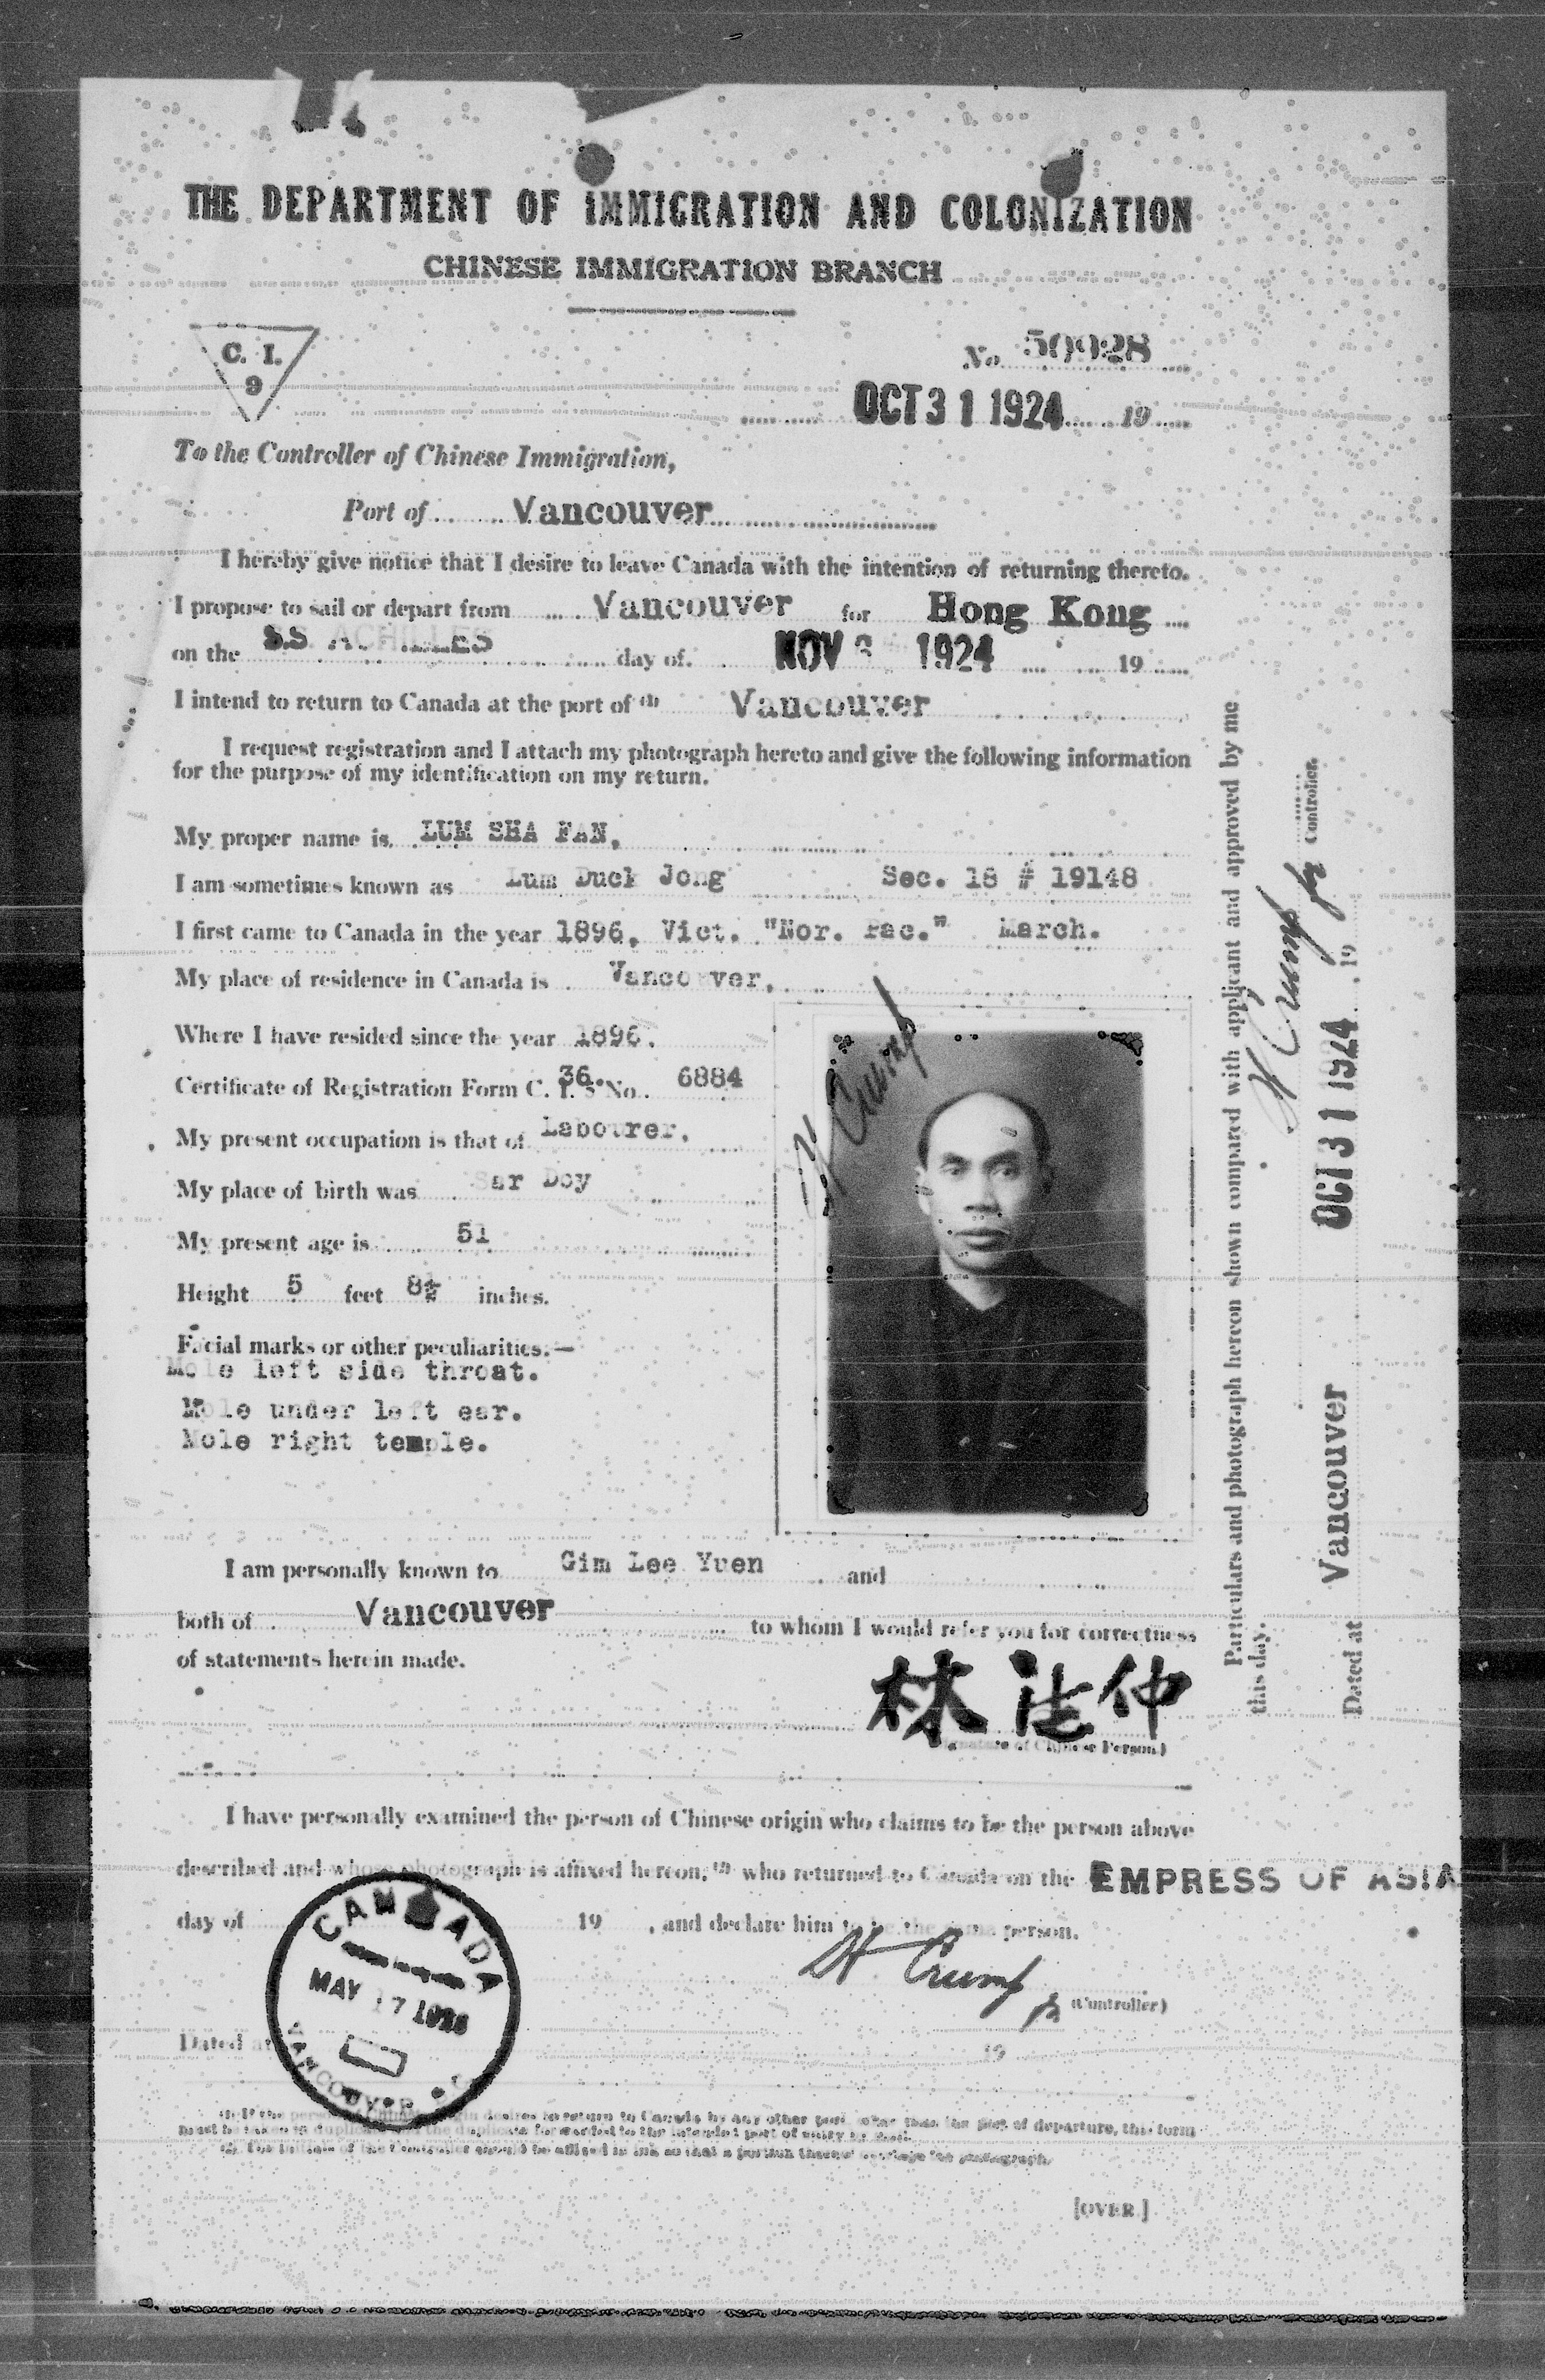 THE DEPARTMENT OF IMMIGRATION AND COLONIZATION
CHINESE IMMIGRATION BRANCH
C. I.
9
No. 50928
OCT 31 1924 19
To the Controller of Chinese Immigration,
Port of Vancouver
I hereby give notice that I desire to leave Canada with the intention of returning thereto.
I propose to sail or depart from Vancouver for Hong Kong
on the S.S. ACHILLES day of NOV 3 1924 19
I intend to return to Canada at the port of (1) Vancouver
I request registration and I attach my photograph hereto and give the following information
for the purpose of my identification on my return.
My proper name is LUM SHA FAN,
I am sometimes known as Lum Duck Jong Sec. 18 # 19148
I first came to Canada in the year 1896, Vict. "Nor. Pac." March.
My place of residence in Canada is Vancouver,
Where I have resided since the year 1896.
Certificate of Registration Form C. I. 5 36. No. 6884
My present occupation is that of Labourer.
My place of birth was Sar Doy
My present age is 51
Height 5 feet 8½ inches.
Facial marks or other peculiarities:—
Mole left side throat.
Mole under left ear.
Mole right temple.
H Crump
I am personally known to Gim Lee Yuen and
both of Vancouver to whom I would refer you for correctness
of statements herein made.
林 仲
(Signature of Chinese Person)
I have personally examined the person of Chinese origin who claims to be the person above
described and whose photograph is affixed hereon, (2) who returned to Canada on the EMPRESS OF ASIA
day of 19 , and declare him to be the same person.
H Crump
(Controller)
Dated at 19
CANADA
MAY 17
VANCOUVER
(1) If the person of Chinese origin desires to return to Canada by any other port other than the port of departure, this form
must be taken in duplicate and the duplicate forwarded to the intended port of entry by mail.
(2) The initials of the Controller should be affixed in ink so that a portion thereof overlaps the photograph.
[OVER.]
Particulars and photograph hereon shown compared with applicant and approved by me
this day.
H Crump Controller.
Dated at Vancouver OCT 31 1924 19